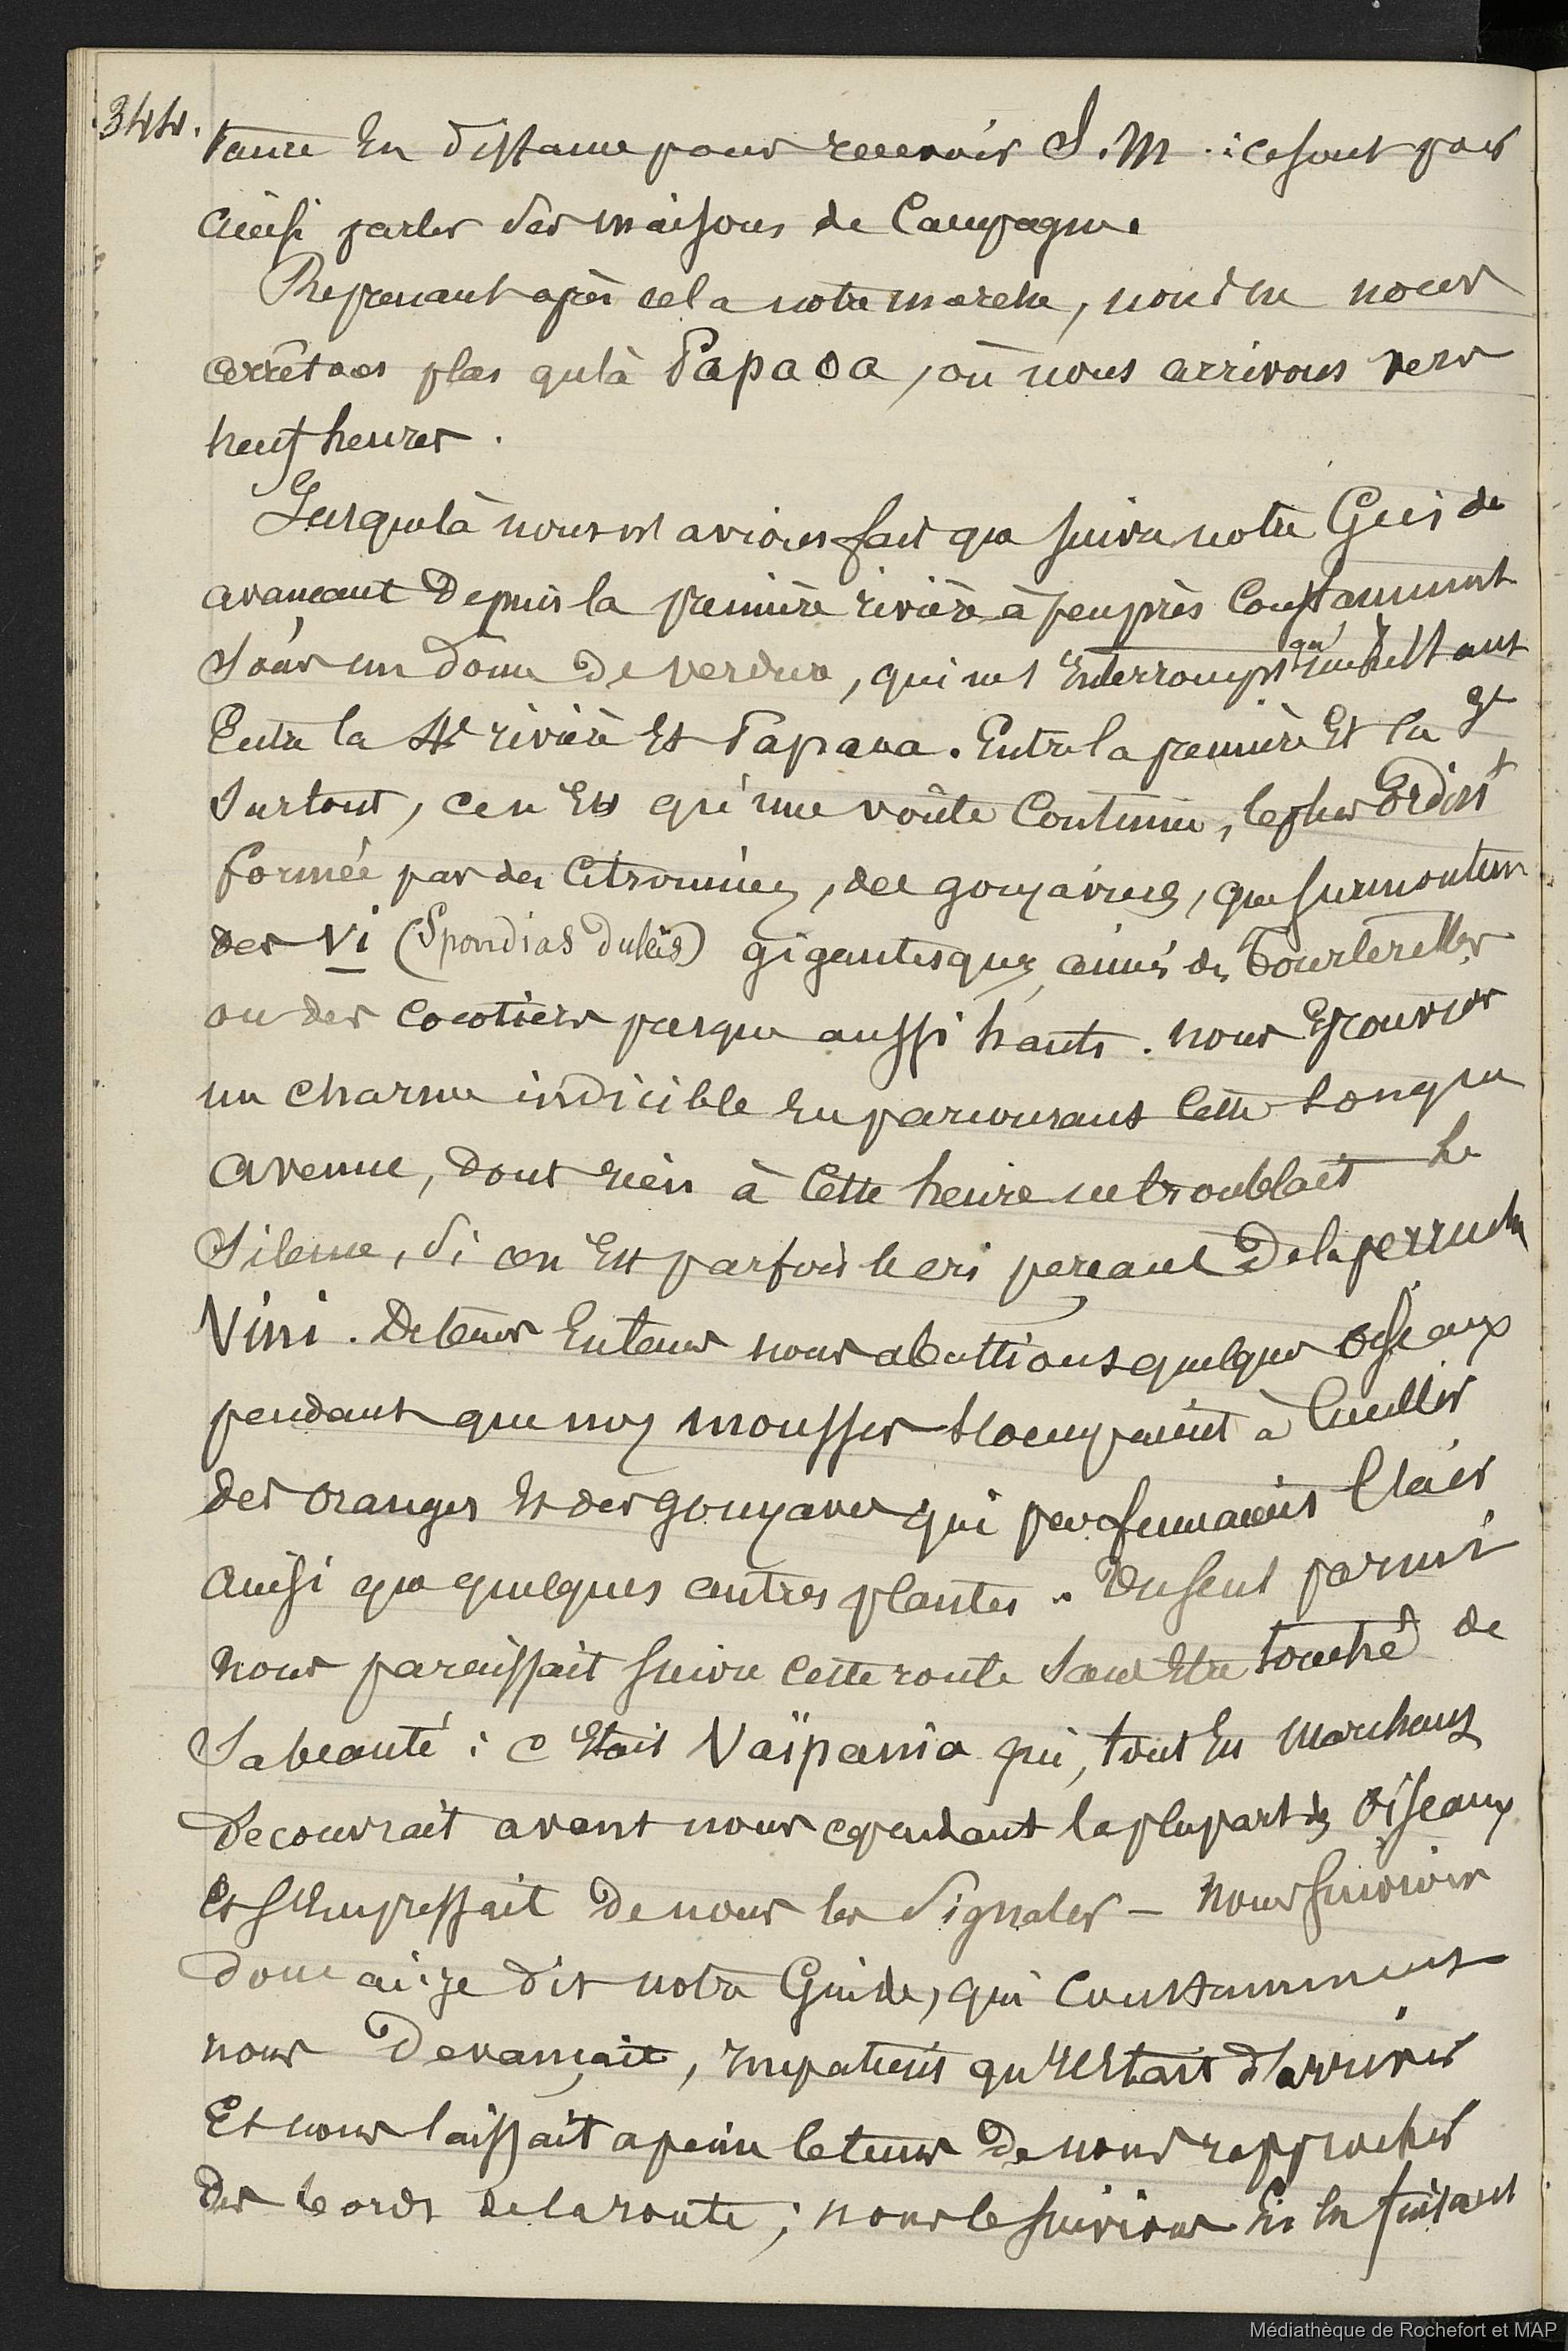 344.
tance en distance pour recevoir S. M. : ce sont pour
ainsi parler des maisons de Campagne.
Reprenant après cela notre marche, nous ne nous
arrêtons plus qu'à Papaoa, où nous arrivons vers
neuf heures.
Jusque là nous n'avions fait que suivre notre Guide
avançant Depuis la première rivière à peu près Constamment
sous un dôme De verdure, qui ne s'interrompt qu'un instant
Entre la 4e rivière Et Papaoa. Entre la première Et la 3e
surtout, ce n'Est qu'une voûte Continue, le plus Ordint
formée par des Citronniers, des goyaviers, que surmontent
des Vi (Spondias dulcis) gigantesques, aimés des Tourterelles
ou des Cocotiers presque aussi hauts. Nous Eprouvions
un Charme indicible En parcourant Cette longue
avenue, dont rien à Cette heure ne troublait le
silence, si ce n'Est parfois le cri perçant De la perruche
Vini. De temps En temps nous abattions quelques oiseaux
pendant que nos mousses s'occupaient à Cueillir
des oranges Et des goyaves qui parfumaient l'air
ainsi que quelques autres plantes. Un seul parmi
nous paraissait suivre Cette route sans Etre touché de
sa beauté : c'Etait Vaïpania qui, tout En marchant
Découvrait avant nous cependant la plupart des oiseaux
Et s'Empressait De nous les signaler — nous suivions
donc ai-je dit notre Guide, qui Constamment
nous Devançait, impatient qu'il Etait d'arriver
Et nous laissait à peine le temps De nous rapprocher
Des bords de la route ; nous le suivions En en faisant
Médiathèque de Rochefort et MAP